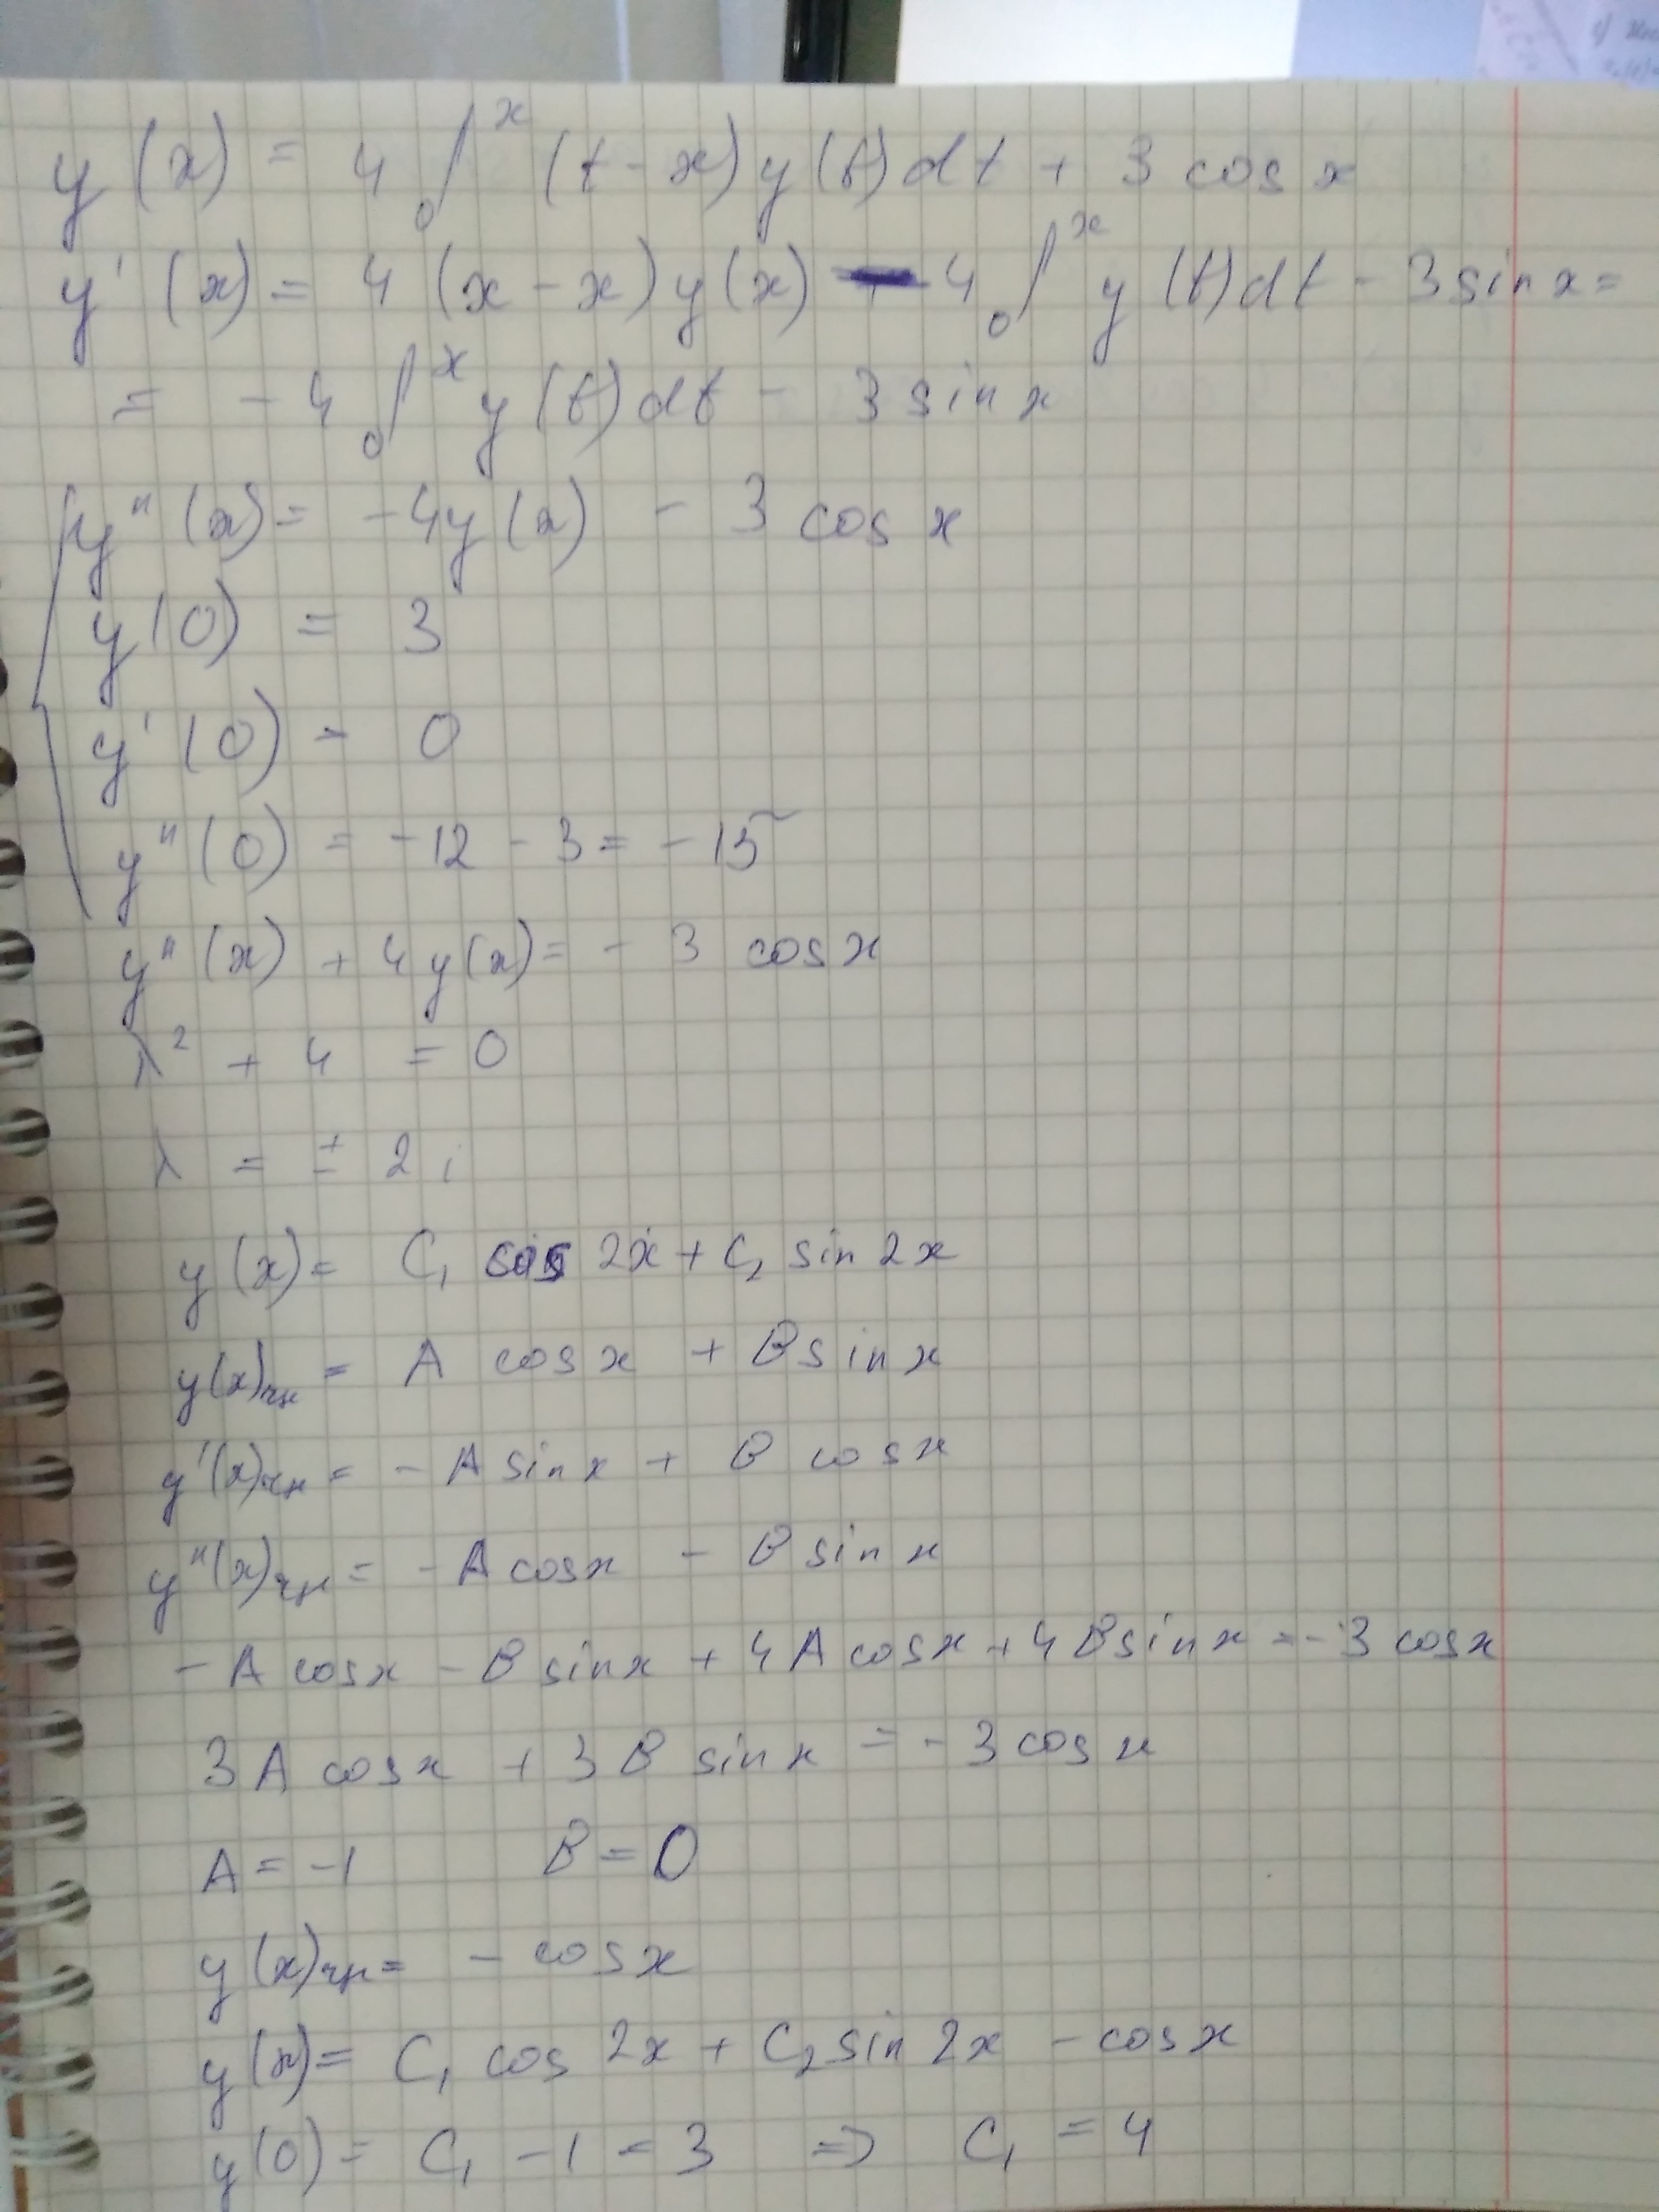 y(x) = 4 ₀∫ˣ (t-x)y(t)dt + 3 cos x
y'(x) = 4 (x-x)y(x) - 4 ₀∫ˣ y(t)dt - 3 sin x =
= -4 ₀∫ˣ y(t)dt - 3 sin x
y"(x) = -4y(x) - 3 cos x
y(0) = 3
y'(0) = 0
y"(0) = -12 - 3 = -15
y"(x) + 4y(x) = -3 cos x
λ² + 4 = 0
λ = ± 2i
y(x) = C₁ cos 2x + C₂ sin 2x
y(x)чн = A cos x + B sin x
y'(x)чн = -A sin x + B cos x
y"(x)чн = -A cos x - B sin x
-A cos x - B sin x + 4A cos x + 4B sin x = -3 cos x
3A cos x + 3B sin x = -3 cos x
A = -1 B = 0
y(x)чн = - cos x
y(x) = C₁ cos 2x + C₂ sin 2x - cos x
y(0) = C₁ - 1 = 3 ⇒ C₁ = 4